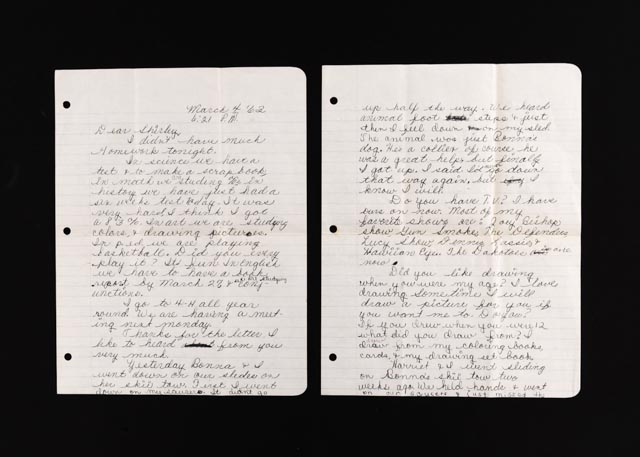 March 4 '62
6:21 P.M.
Dear Shirley,
I didn't have much
Homework tonight.
In science we have a
test & to make a scrapbook.
In math we studing %. In
history we have just had a
six weeks test today. It was
very hard. I think I got
a 83%. In art we are studying
colors & drawing pictures.
In p.e.d. we are playing
basketball. Did you every
play it? It's fun. In English
we have to have a book
report by March 23 & we are studying conj-
unctions.
I go to 4-H all year
round. We are having a meet-
ing next monday.
Thanks for the letter I
like to heard from you
very much.
Yesterday Donna & I
went down on our slides on
her skii tow. First I went
down on my saucer. It didn't go
up half the way. We heard
animal foot steps & just
then I fell down on my sled.
The animal was just Donna's
dog. He's a collier of course he
was a great help but finally
I got up. I said I'd go down
that way again, but I
know I will.
Do you have T.V.? I have
ours on now. Most of my
favorite shows are: Joey Bishop
show, Gun Smoke, The Defenders
Lucy Show, Dennis &
Hawiian Eye. The Dakotas is on
now.
Did you like drawing
when you were my age? I love
drawing. Sometime I will
draw a picture for you if
you want me to. Do you?
If you drew when you were 12
what did you draw from? I
draw from my coloring books,
cards, & my drawing set book.
Harriet & I went sliding
on Donna's skii tow two
weeks ago. We held hands & went
on our saucers & just missed the